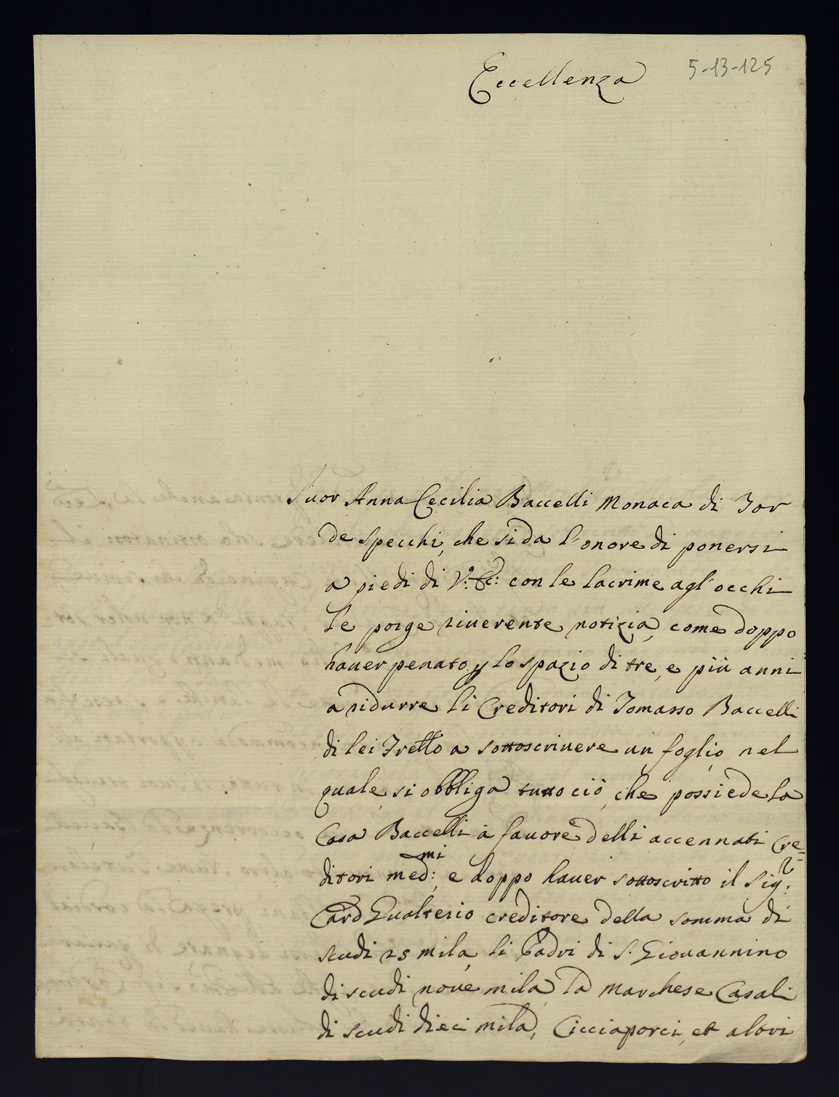 Eccellenza 5-13-125
Suor Anna Cecilia Baccelli Monaca di Tor
de Specchi, che si da l'onore di ponersi
a piedi di V.ª Ec: con le lacrime agl'occhi
le porge riverente notizia, come doppo
haver penato p lo spazio di tre, e più anni
a ridurre li Creditori di Tomasso Baccelli
di lei Frello a sottoscrivere un foglio, nel
quale si obbliga tutto ciò, che possiede la
Casa Baccelli à favore delli accennati Cre=
ditori med:mi, e doppo haver sottoscritto il Sig.r
Card Gualterio creditore della somma di
scudi 25 mila, li Padri di S. Giovannino
di scudi nove mila, la Marchese Casali
di scudi dieci mila, Cicciaporci, et altri